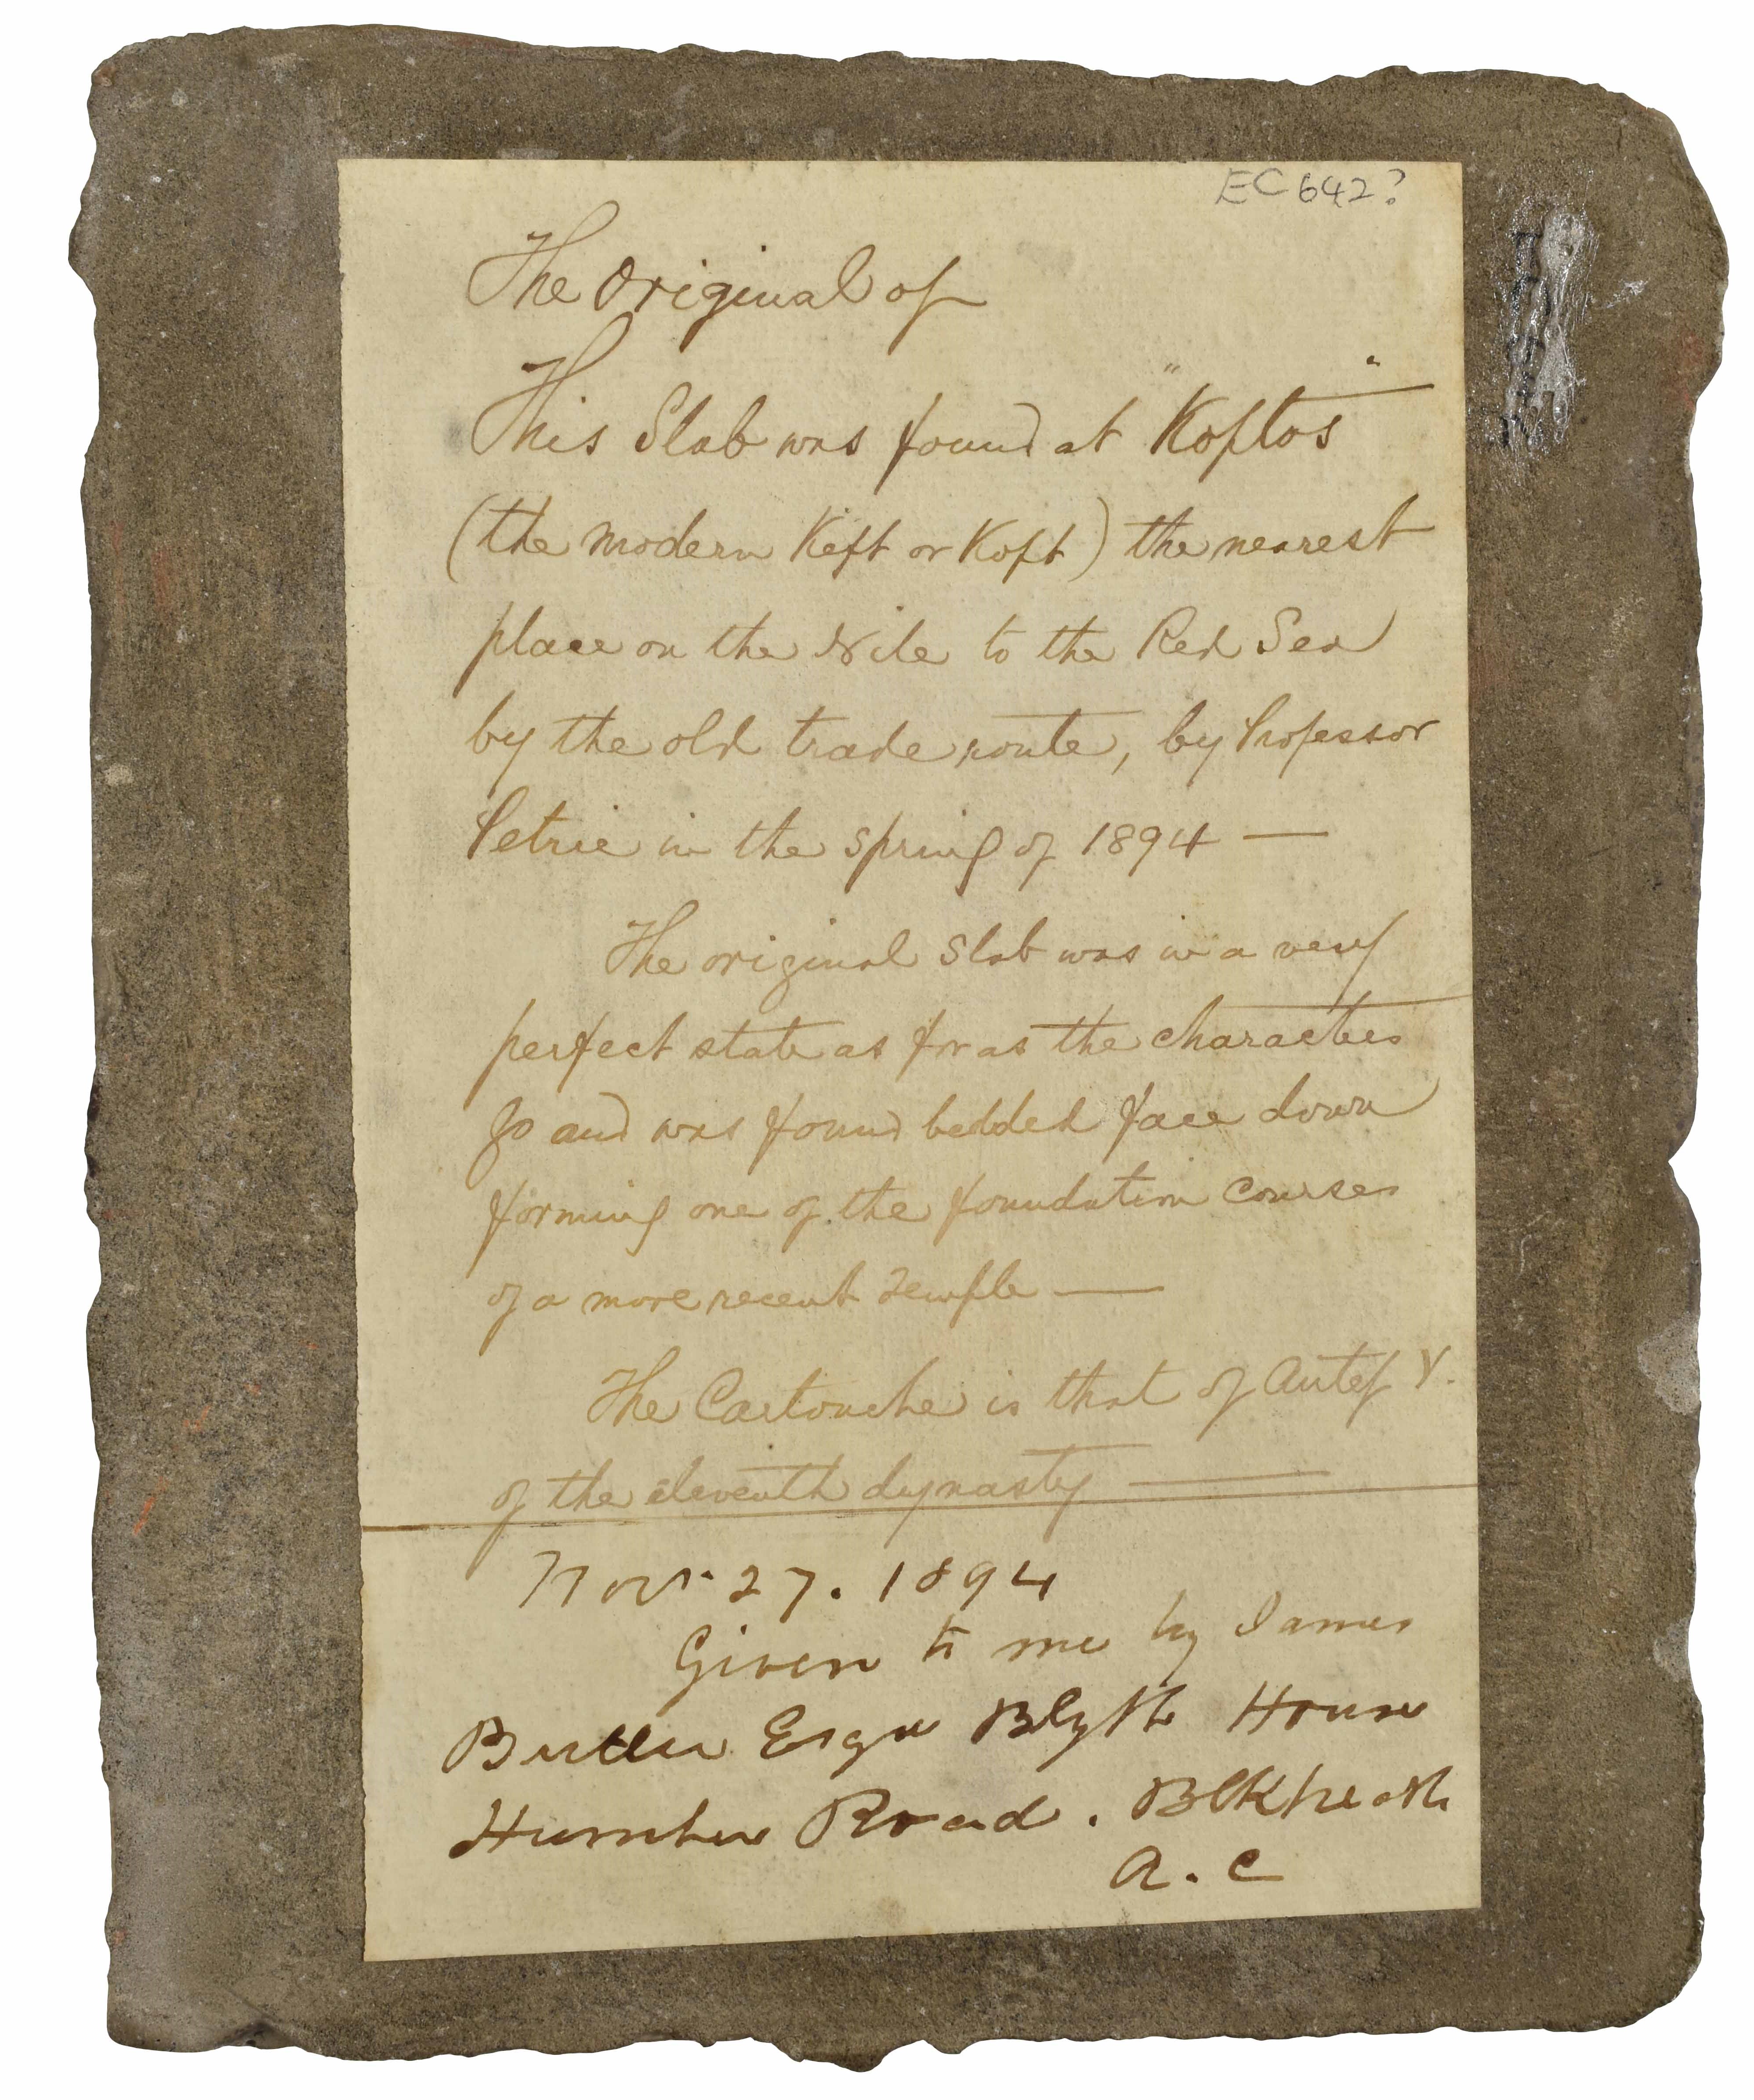 EC 642?
The Original of
This Slab was found at "Koptos"
(the modern Keft or Koft) the nearest
place on the Nile to the Red Sea
by the old trade route, by Professor
Petrie in the spring of 1894 —
The original slab was in a very
perfect state as far as the characters
go and was found bedded face down
forming one of the foundation courses
of a more recent temple —
The Cartouche is that of Antef V.
of the eleventh dynasty —
Novr. 27. 1894
Given to me by James
Butler Esqre Blyth House
Humber Road. Blkheath
A. C